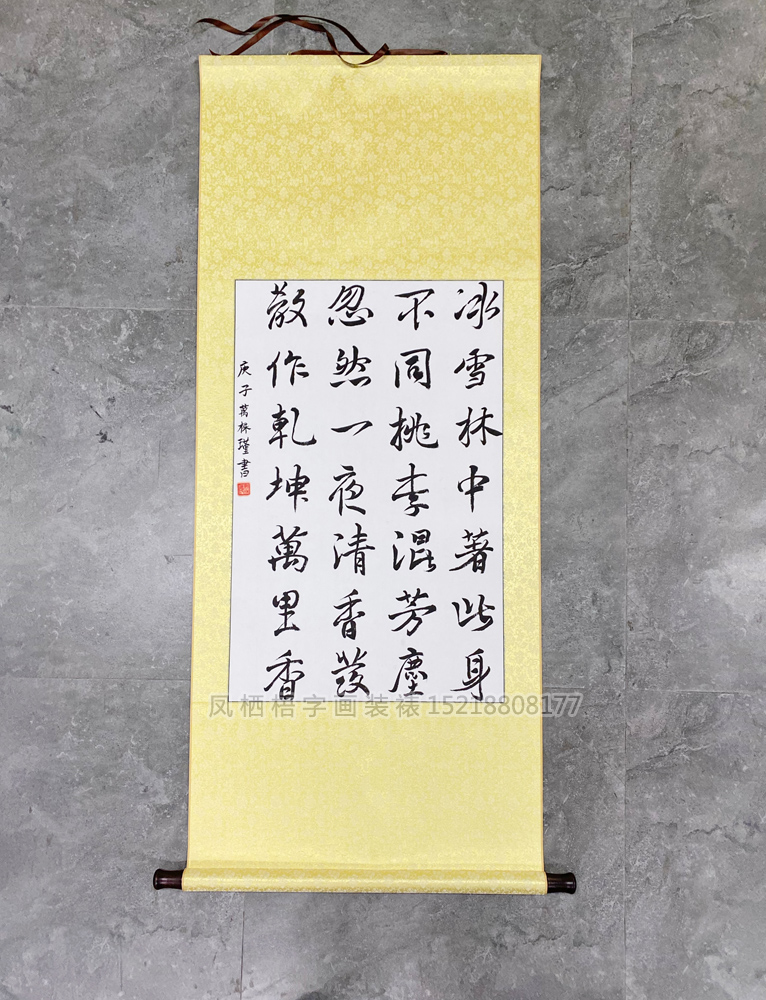 冰雪林中著此身
不同桃李混芳塵
忽然一夜清香發
散作乾坤萬里香
庚子萬林瑾書
凤栖梧字画装裱 15218808177